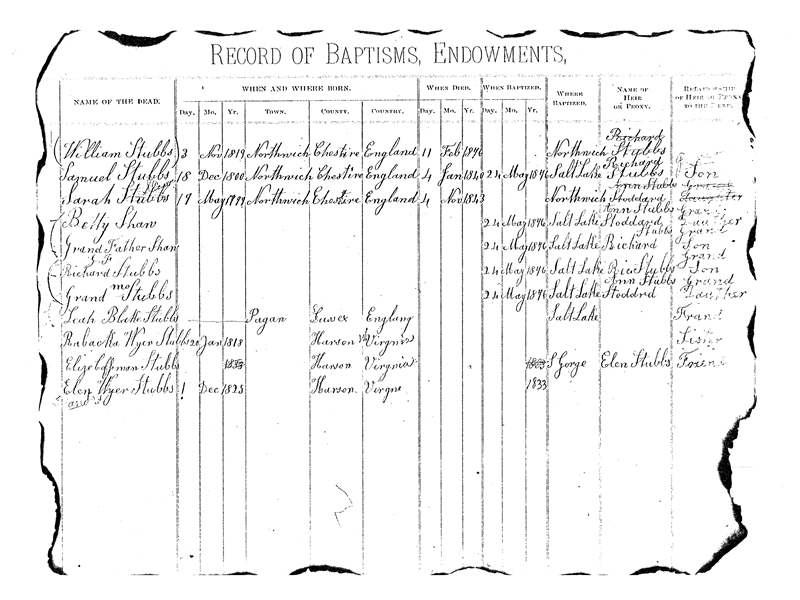 RECORD OF BAPTISMS, ENDOWMENTS,
NAME OF THE DEAD. WHEN AND WHERE BORN. WHEN DIED. WHEN BAPTIZED. WHERE BAPTIZED. NAME OF HEIR OR PROXY. RELATIONSHIP OF HEIR OR PROXY TO THE DEAD.
Day. Mo. Yr. Town. County. Country. Day. Mo. Yr. Day. Mo. Yr.
William Stubbs 3 Nov 1819 Northwich Chestire England 11 Feb 1846 Northwich Richard Stubbs
Samuel Stubbs 18 Dec 1800 Northwich Chestire England 4 Jan 1840 24 May 1876 Salt Lake Richard Stubbs Son
Sarah Stubbs 17 May 1799 Northwich Chestire England 4 Nov 1843 Northwich Ann Stubbs Stoddard Daughter
Betty Shaw 24 May 1876 Salt Lake Ann Stubbs Stoddard Grand Daugher
Grand Father Shaw 24 May 1876 Salt Lake Richard Stubbs Grand Son
G F Richard Stubbs 24 May 1876 Salt Lake Ric Stubbs Grand Son
Grand mo Stubbs 24 May 1876 Salt Lake Ann Stubbs Stoddrd Grand Daugher
Leah Blake Stubbs Pagan Susex Englang Salt Lake Frand
Rabacka Wyer Stubbs 20 Jan 1818 Harson Virgnia Sister
Stubbs 1833 Harson Virgnia 1863 S Gorge Elen Stubbs Friend
Elen Wyer Stubbs 1 Dec 1823 Harson Virgne 1833